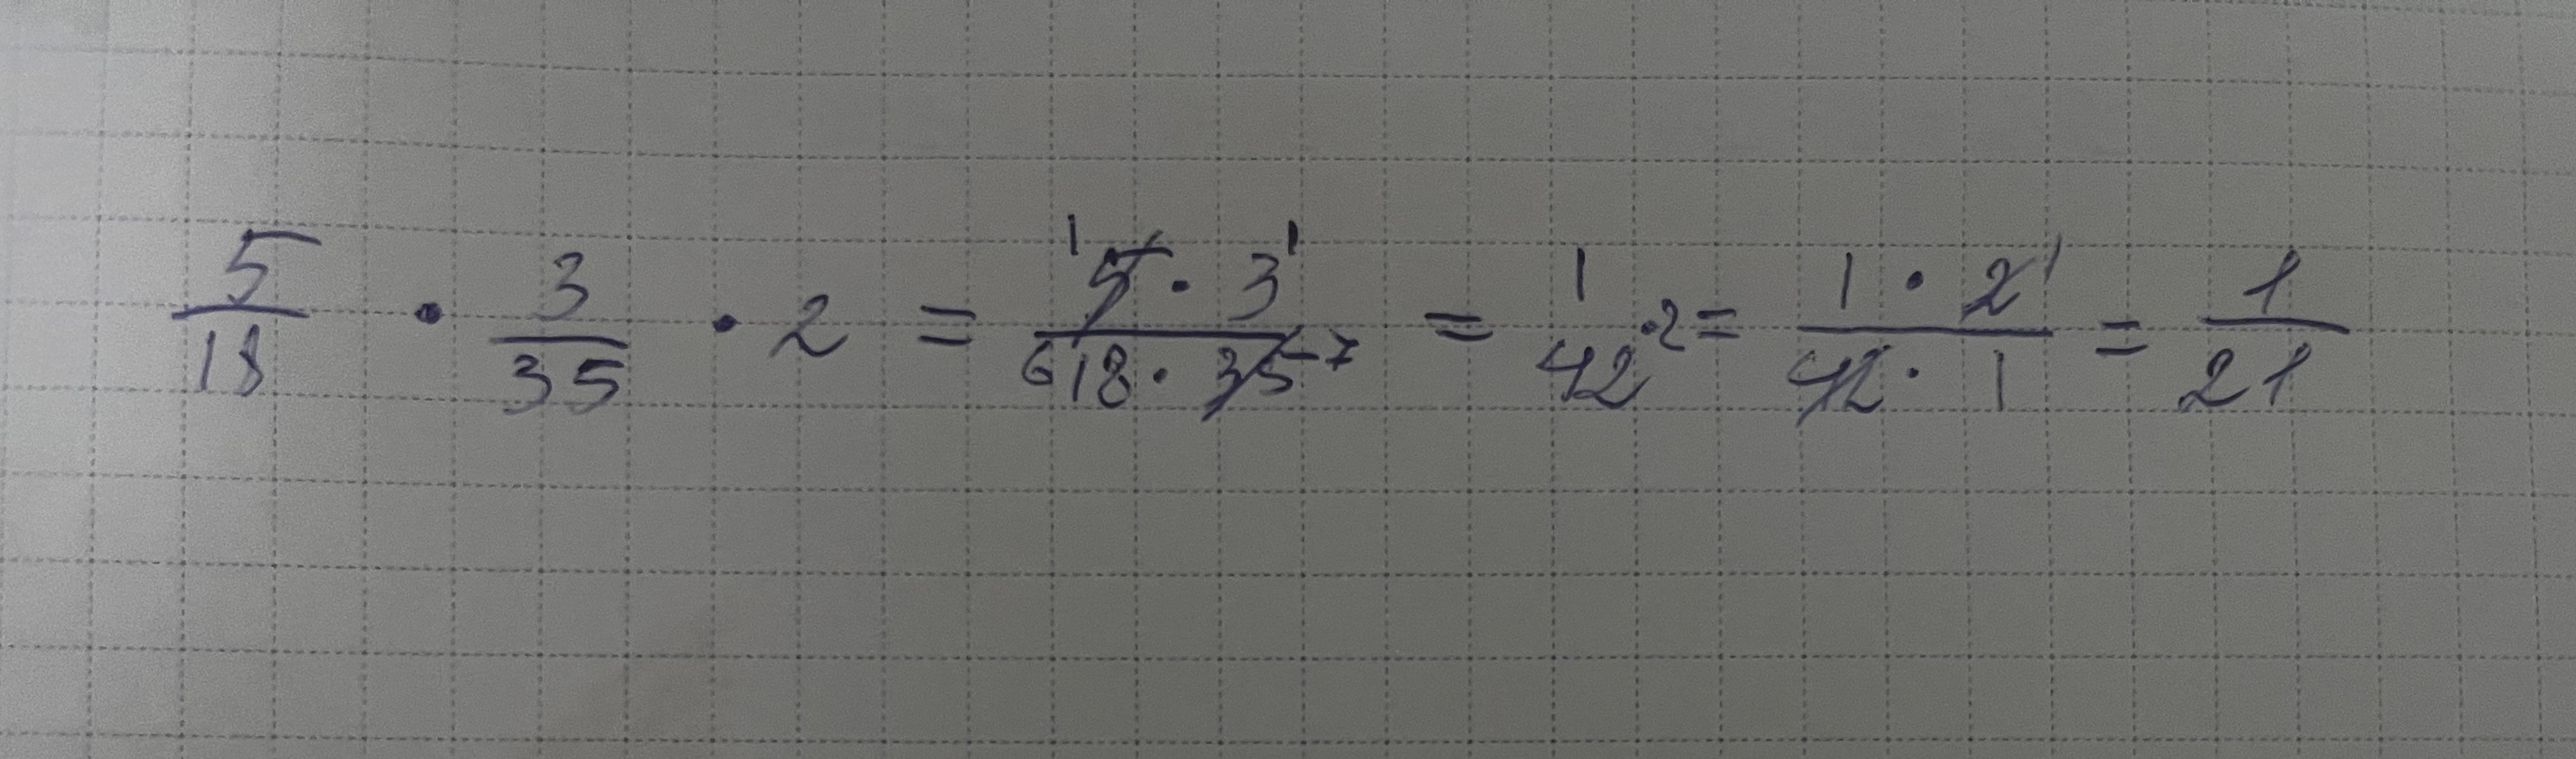 5/18 · 3/35 · 2 = ¹5 · 3¹ / ⁶18 · 35⁻⁷ = 1/42 · 2 = 1 · 2¹ / 42 · 1 = 1/21